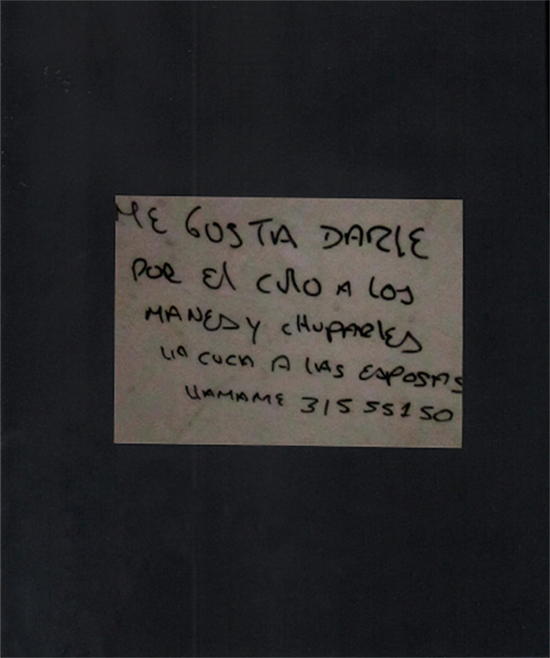 ME GUSTA DARLE
POR El CULO A LOS
MANES Y CHUPARLES
LA CUCA A LAS ESPOSAS
LLAMAME 315 55150